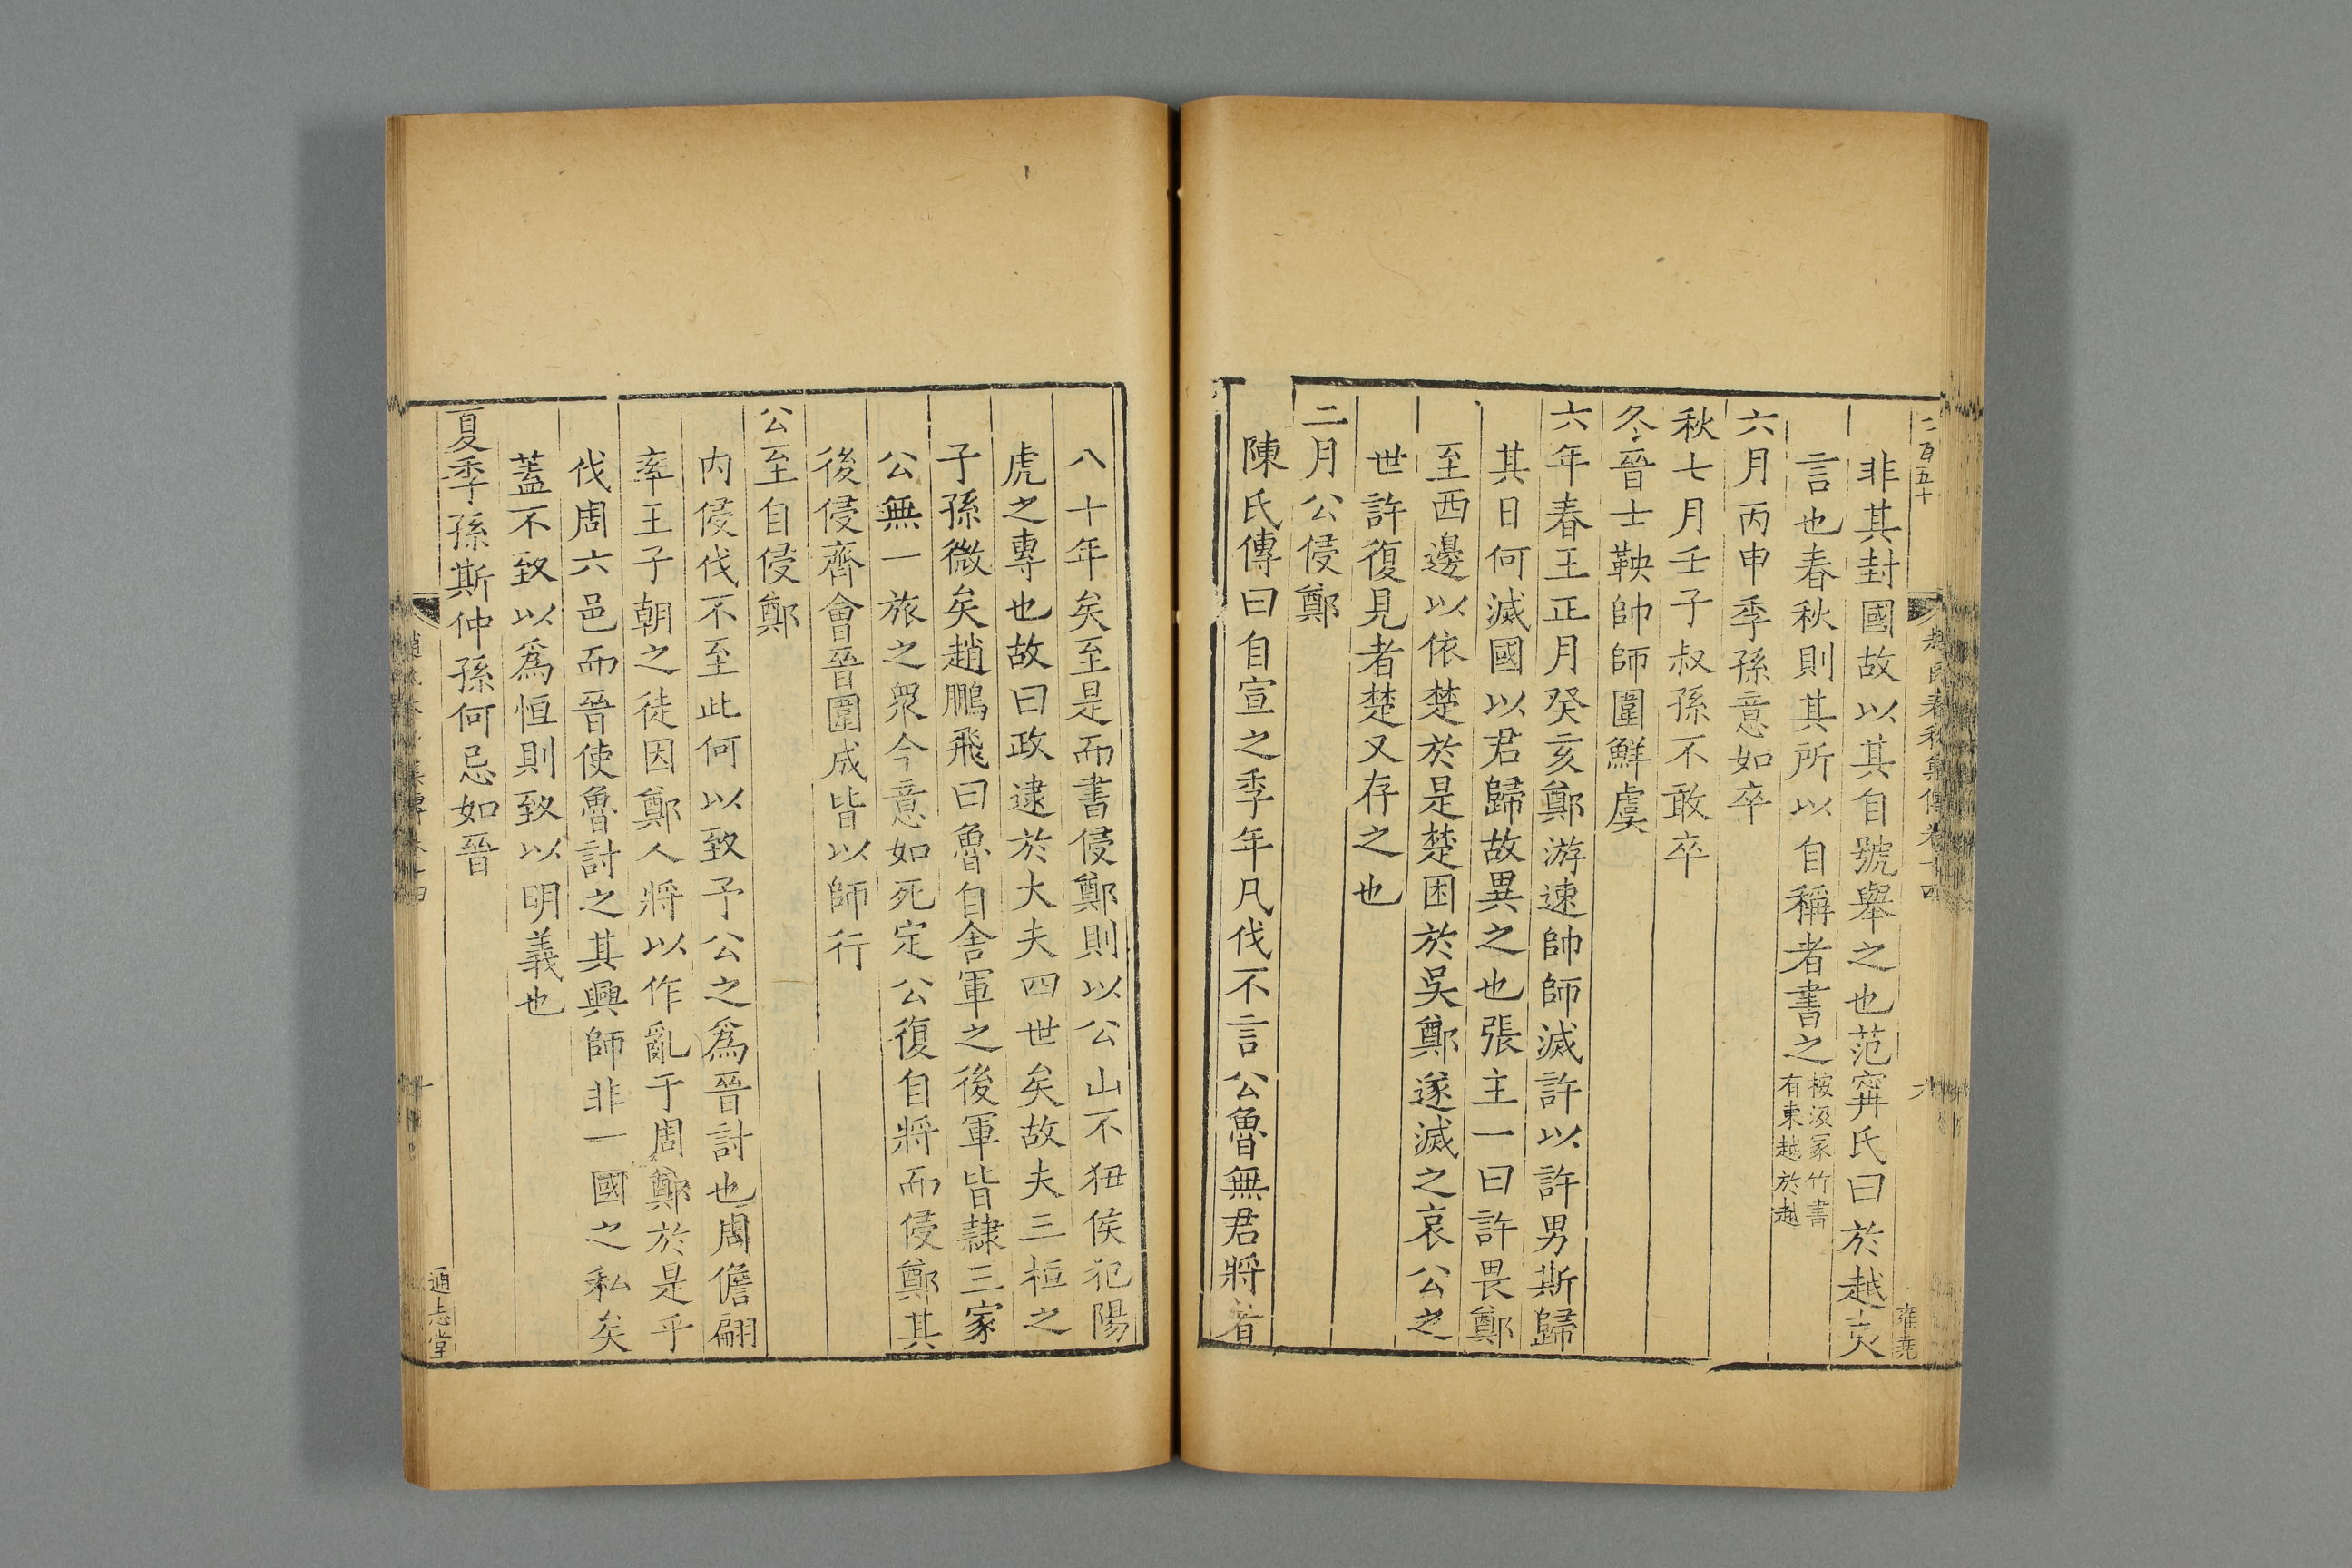 二百五十
雍堯
非其封國故以其自號舉之也范寗氏曰於越夷
言也春秋則其所以自稱者書之桉汲冢竹書有東越於越
六月丙申季孫意如卒
秋七月壬子叔孫不敢卒
冬晉士鞅帥師圍鮮虞
六年春王正月癸亥鄭游速帥師滅許以許男斯歸
其日何滅國以君歸故異之也張主一曰許畏鄭
至西邊以依楚於是楚困於吳鄭遂滅之哀公之
世許復見者楚又存之也
二月公侵鄭
陳氏傳曰自宣之季年凡伐不言公魯無君將者
八十年矣至是而書侵鄭則以公山不狃侯犯陽
虎之專也故曰政逮於大夫四世矣故夫三桓之
子孫微矣趙鵬飛曰魯自舍軍之後軍皆隸三家
公無一旅之衆今意如死定公復自將而侵鄭其
後侵齊會晉圍成皆以師行
公至自侵鄭
内侵伐不至此何以致予公之爲晉討也周儋翩
率王子朝之徒因鄭人將以作亂于周鄭於是乎
伐周六邑而晉使魯討之其興師非一國之私矣
蓋不致以爲恒則致以明義也
夏季孫斯仲孫何忌如晉
通志堂